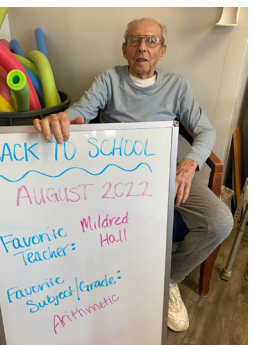 ACK TO SCHOOL
AUGUST 2022
Favorite
Teacher:
Mildred
Hall
Favorite
Subject/Grade:
Arithmetic